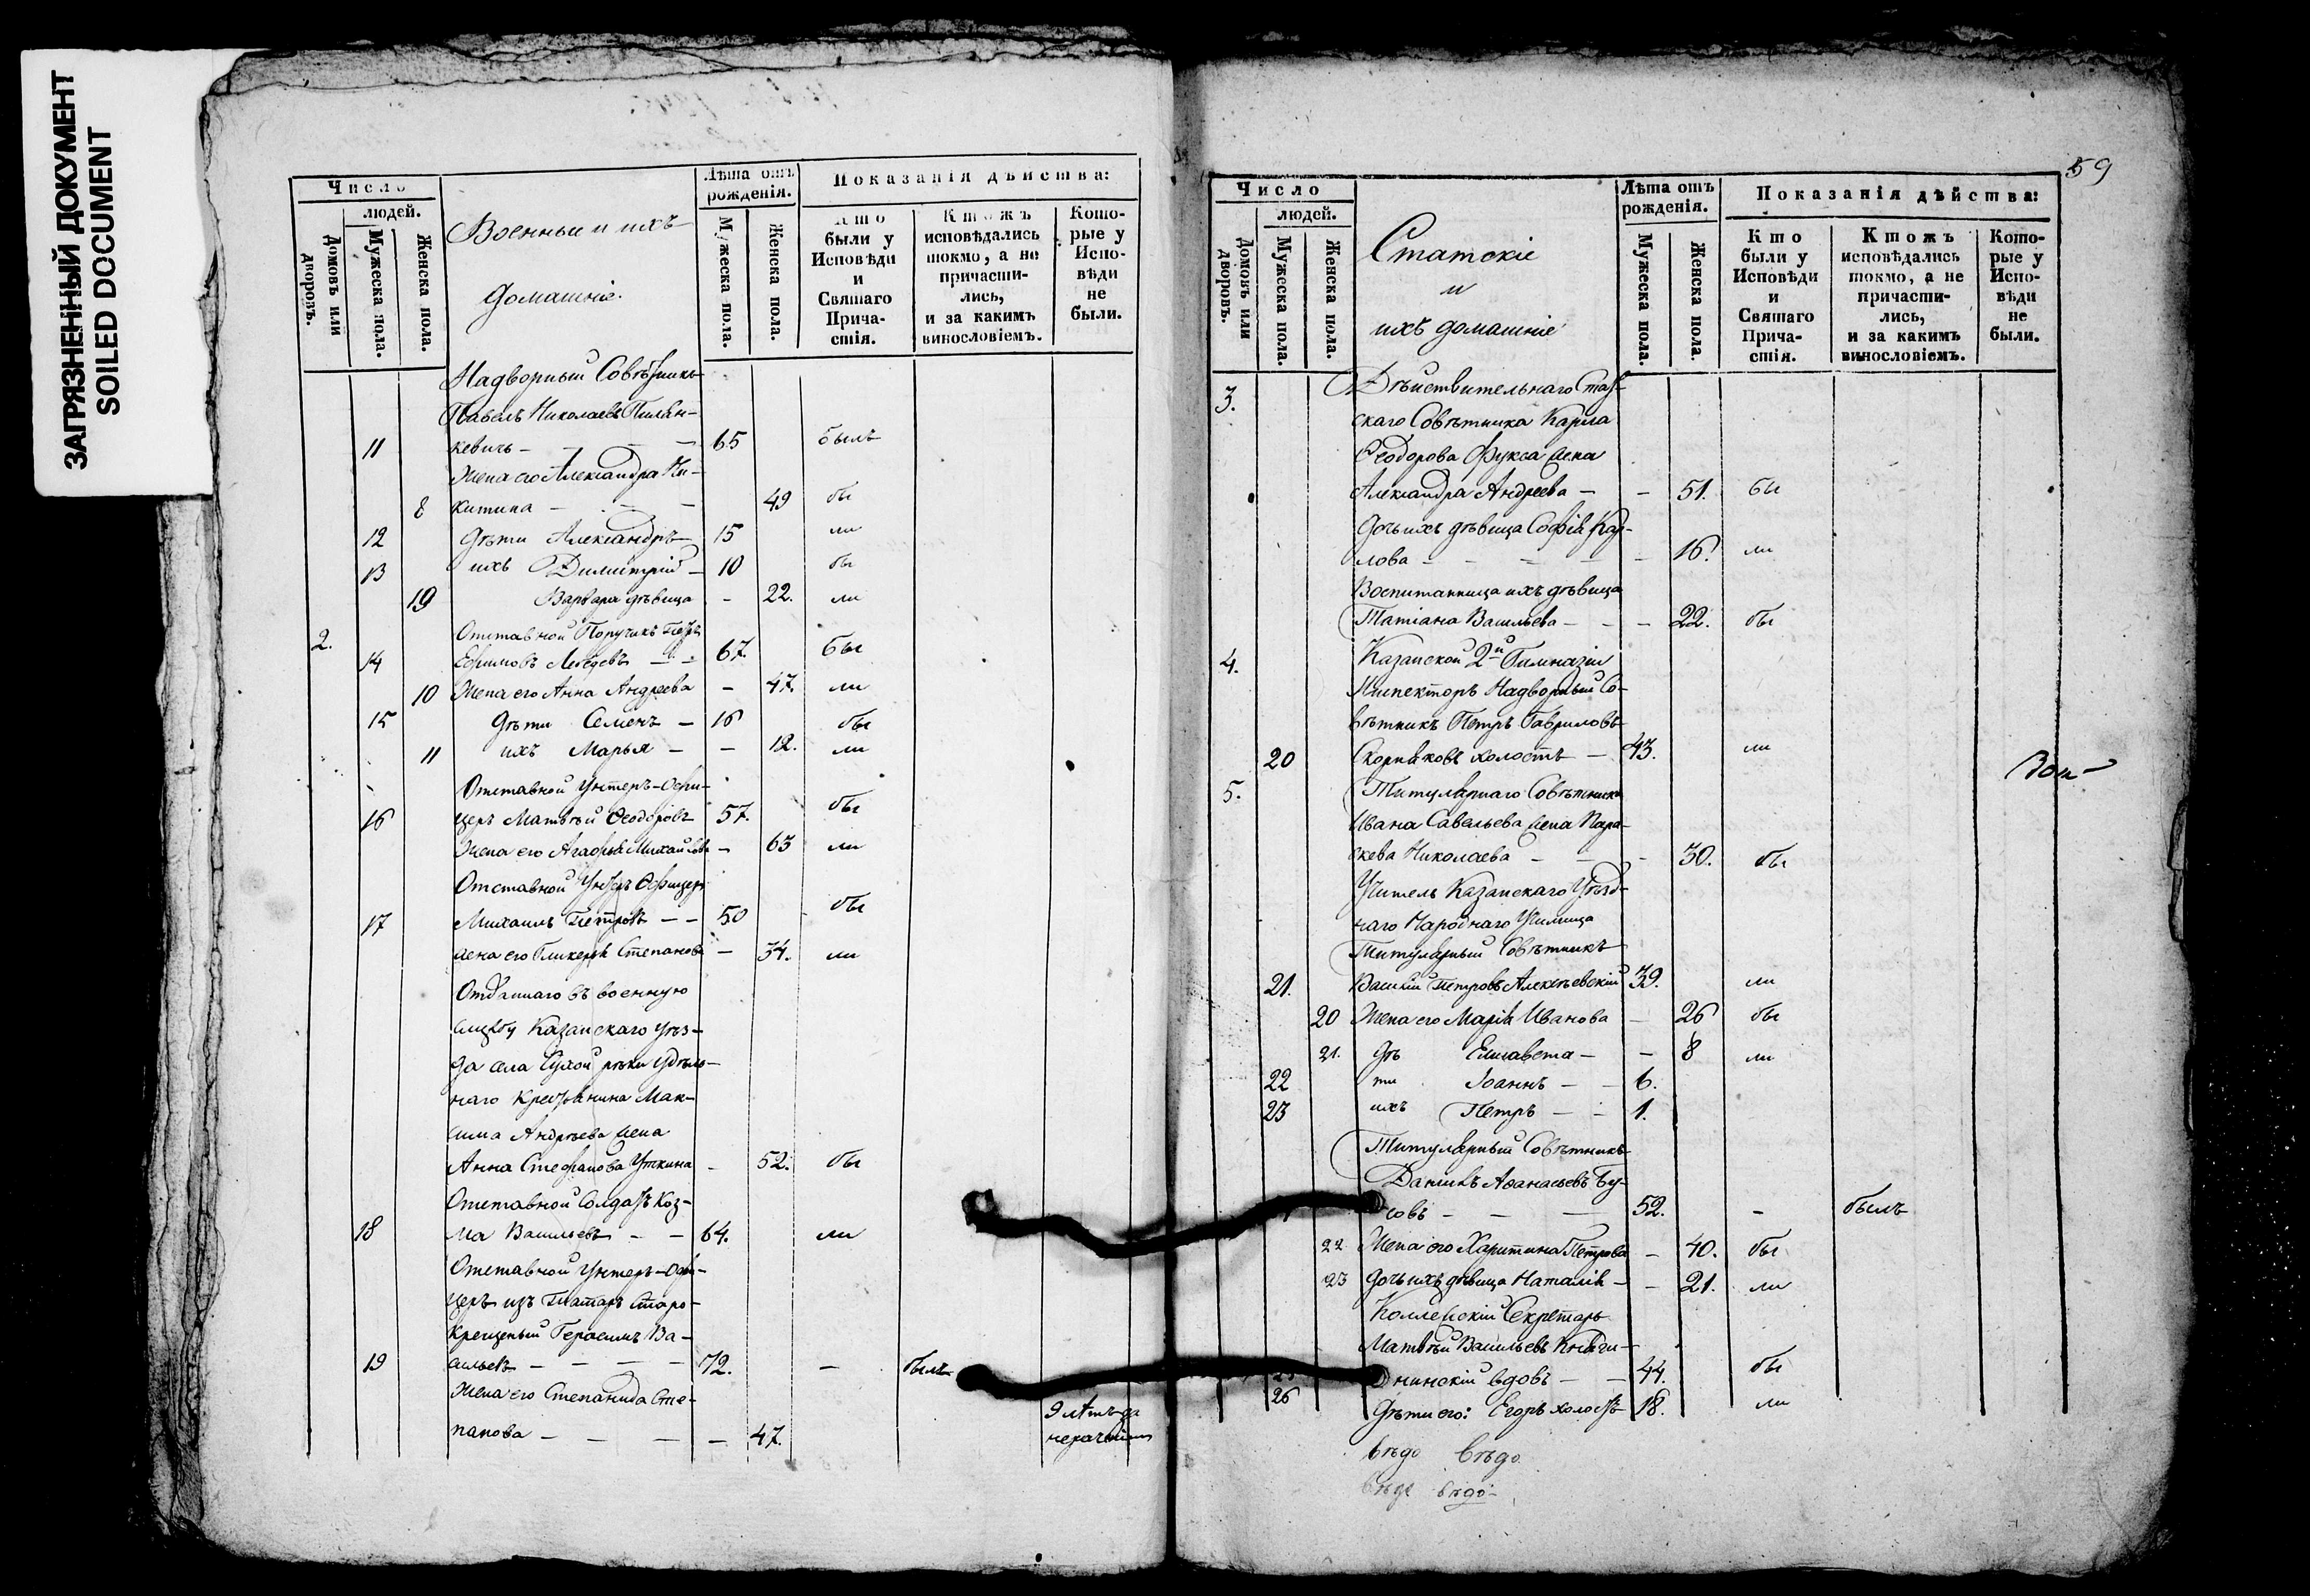 ЗАГРЯЗНЕННЫЙ ДОКУМЕНТ
SOILED DOCUMENT
Число
людей.
Домовъ или дворовъ.
Мужеска пола.
Женска пола.
Военныи и ихъ
домашніе.
Лѣта отъ рожденія.
Мужеска пола.
Женска пола.
Показанія дѣйства:
Кто были у Исповѣди и Святаго Причастія.
Ктожъ исповѣдались токмо, а не причастились, и за какимъ винословіемъ.
Которые у Исповѣди не были.
Надворный Совѣтникъ
Павелъ Николаевъ
11 кевичь — 65 былъ
Жена его Александра Ни-
8 китина — 49 бы
12 Дѣти Александръ 15 ли
13 ихъ Димитрій — 10 бы
19 Варвара дѣвица — 22. ли
2. Отставной Поручикъ Петръ
14 Ефимовъ Лебедевъ 67. бы
10 Жена его Анна Андреева — 47. ли
15 Дѣти Семенъ — 16 бы
11 ихъ Марья — 12. ли
Отставной Унтеръ-Офи-
16 церъ Матвѣй Ѳеодоровъ 57. бы
Жена его Агафья Михайлова — 63 ли
Отставной Унтеръ Офицеръ
17 Михаилъ Петровъ — 50 бы
жена его Гликерія Степанова — 34. ли
Отданнаго въ военную
службу Казанскаго уѣз-
да села Сухой рѣки удѣль-
наго крестьянина Мак-
сима Андреева жена
Анна Стефанова Уткина — 52. бы
Отставной Солдатъ Коз-
18 ма Васильевъ — 64. ли
Отставной унтеръ-офи-
церъ изъ Татаръ Старо-
крещеный Герасимъ Ва-
19 сильевъ — 72. — былъ
Жена его Степанида Сте-
панова — 47.
59
Число
людей.
Домовъ или дворовъ.
Мужеска пола.
Женска пола.
Статскіе
и
ихъ домашніе
Лѣта отъ рожденія.
Мужеска пола.
Женска пола.
Показанія дѣйства:
Кто были у Исповѣди и Святаго Причастія.
Ктожъ исповѣдались токмо, а не причастились, и за какимъ винословіемъ.
Которые у Исповѣди не были.
3. Дѣйствительнаго Стат-
скаго Совѣтника Карла
Ѳеодорова Фукса жена
Александра Андреева — 51. бы
Дочь ихъ дѣвица Софія Кар-
лова — 16. ли
Воспитанница ихъ дѣвица
Татіана Васильева — 22. бы
4. Казанской 2й Гимназіи
Инспекторъ Надворный Со-
вѣтникъ Петръ Гавриловъ
20 Скорняковъ холостъ — 43. ли
5. Титулярнаго Совѣтника
Ивана Савельева жена Пара-
скева Николаева — 30. бы
Учитель Казанскаго Уѣзд-
наго Народнаго Училища
Титулярный Совѣтникъ
21. Василій Петровъ Алексѣевскій 39. ли
20 Жена его Марія Иванова — 26 бы
21. Дѣ Елисавета — 8 ли
22 ти Іоаннъ — 6.
23 ихъ Петръ — 1.
Титулярный Совѣтникъ
Даніилъ Аѳанасьевъ Бу-
совъ — 52. — былъ
22 Жена его Харитина Петрова — 40. бы
23 Дочь ихъ дѣвица Наталія — 21. ли
Коллежскій Секретарь
Матвѣй Васильевъ Княги-
нинскій вдовъ — 44. бы
26 Дѣти его: Егоръ холостъ 18. ли
вѣдо вѣдо